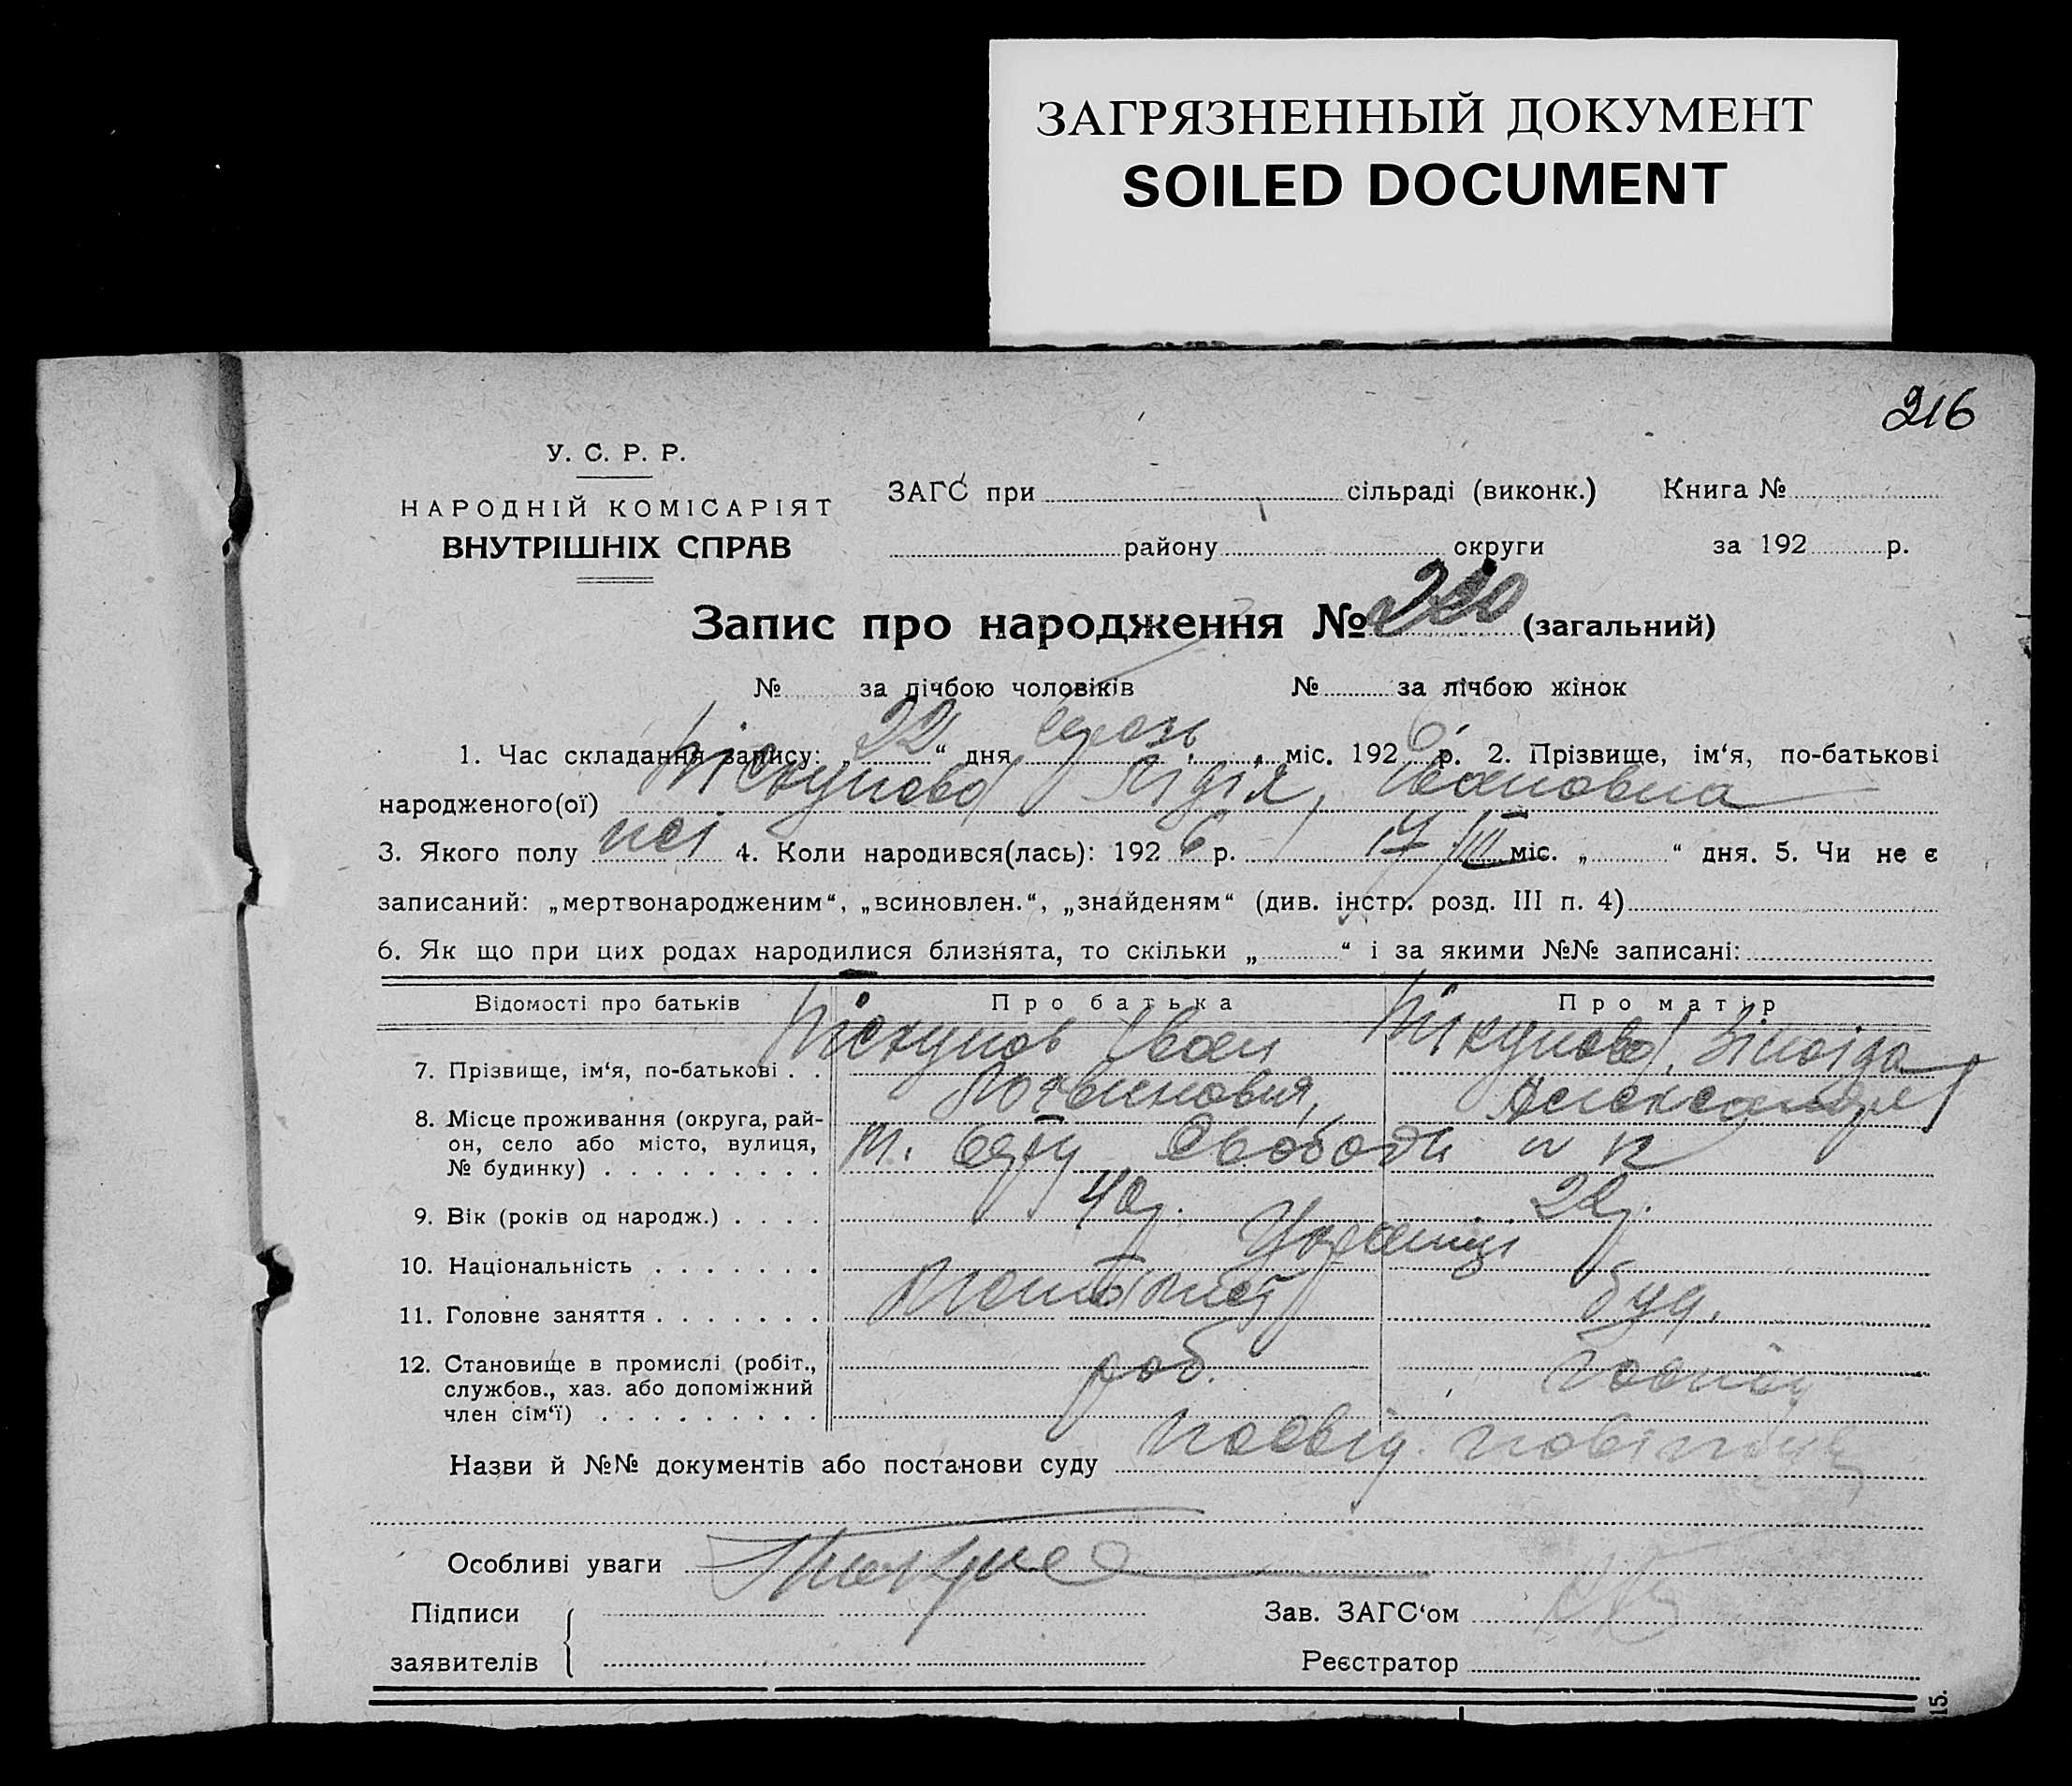 ЗАГРЯЗНЕННЫЙ ДОКУМЕНТ
SOILED DOCUMENT
216
У. С. Р. Р.
НАРОДНІЙ КОМІСАРІЯТ
ВНУТРІШНІХ СПРАВ
ЗАГС при сільраді (виконк.) Книга №
району округи за 192 р.
Запис про народження № (загальний)
№ за лічбою чоловіків № за лічбою жінок
1. Час складання запису: „22“ дня міс. 1926 р. 2. Прізвище, ім‘я, по-батькові
народженого(ої) Піскунова Лідія, Івановна
3. Якого полу 4. Коли народився(лась): 1926 р. 17/III міс. „ “ дня. 5. Чи не є
записаний: „мертвонародженим“, „всиновлен.“, „знайденям“ (див. інстр. розд. III п. 4)
6. Як що при цих родах народилися близнята, то скільки „ “ і за якими №№ записані:
Відомості про батьків Про батька Про матір
7. Прізвище, ім‘я, по-батькові . . Піскунов Іван Піскунова Зіноіда
8. Місце проживання (округа, рай-
он, село або місто, вулиця,
№ будинку) . . . . . . . . . м. Свободи
9. Вік (років од народж.) . . . . 22
10. Національність . . . . . . . Українці
11. Головне заняття . . . . . . .
12. Становище в промислі (робіт.,
службов., хаз. або допоміжний
член сім‘ї) . . . . . . . . . роб.
Назви й №№ документів або постанови суду посвід.
Особливі уваги
Підписи
заявителів
Зав. ЗАГС‘ом
Реєстратор
15.